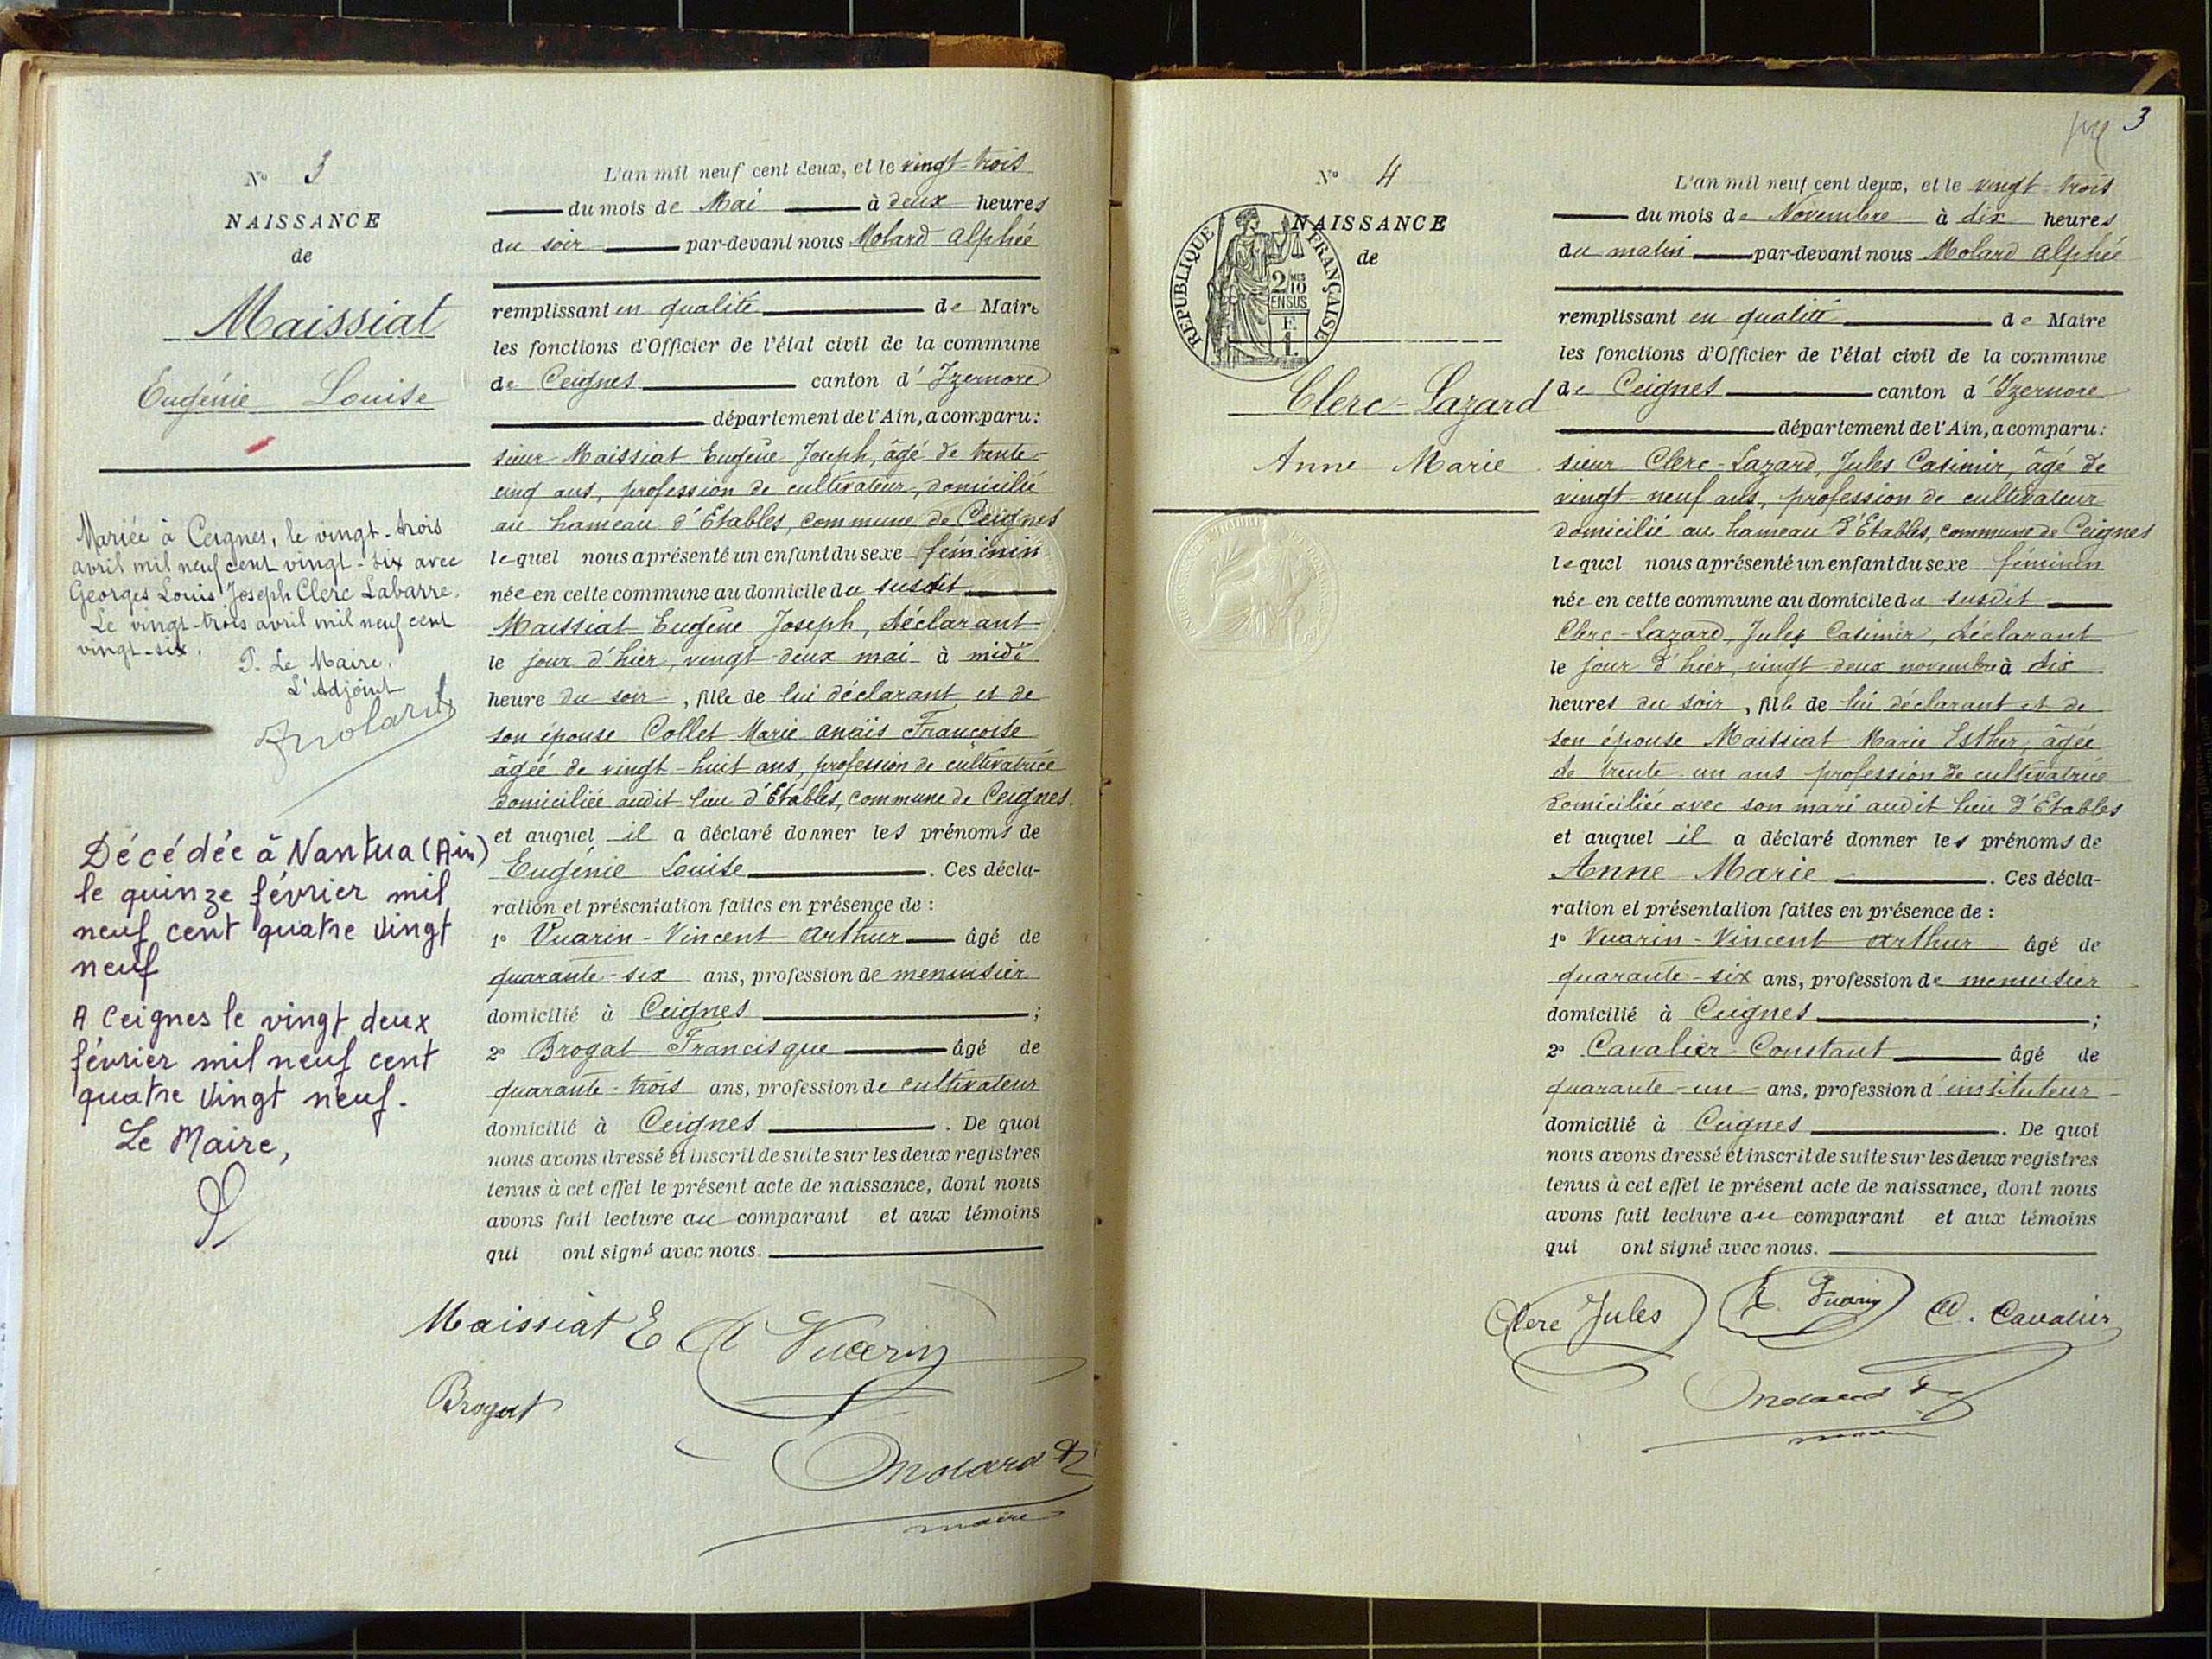 N° 3
NAISSANCE
de
Maissiat
Eugénie Louise
Mariée à Ceignes, le vingt-trois
avril mil neuf cent vingt-six avec
Georges Louis Joseph Clerc Labarre.
Le vingt-trois avril mil neuf cent
vingt-six.
P. Le Maire.
L'Adjoint
Décédée à Nantua (Ain)
le quinze février mil
neuf cent quatre vingt
neuf
A Ceignes le vingt deux
février mil neuf cent
quatre vingt neuf.
Le Maire,
L'an mil neuf cent deux, et le vingt-trois
du mois de Mai à deux heures
du soir par-devant nous Molard Alphée
remplissant en qualité de Maire
les fonctions d'Officier de l'état civil de la commune
de Ceignes canton d'Izernore
département de l'Ain, a comparu:
sieur Maissiat Eugène Joseph, âgé de trente-
cinq ans, profession de cultivateur, domicilié
au hameau d'Étables, commune de Ceignes
lequel nous a présenté un enfant du sexe féminin
née en cette commune au domicile du susdit
Maissiat Eugène Joseph, déclarant
le jour d'hier, vingt-deux mai à midi
heure du soir, fille de lui déclarant et de
son épouse Collet Marie Anaïs Françoise
âgée de vingt-huit ans, profession de cultivatrice
domiciliée audit lieu d'Étables, commune de Ceignes.
et auquel il a déclaré donner les prénoms de
Eugénie Louise. Ces décla-
ration et présentation faites en présence de :
1° Vuarin-Vincent Arthur âgé de
quarante-six ans, profession de menuisier
domicilié à Ceignes ;
2° Brogat Francisque âgé de
quarante-trois ans, profession de cultivateur
domicilié à Ceignes. De quoi
nous avons dressé et inscrit de suite sur les deux registres
tenus à cet effet le présent acte de naissance, dont nous
avons fait lecture au comparant et aux témoins
qui ont signé avec nous.
Maissiat E A Vuarin
Brogat
Molard A
maire
3
N° 4
NAISSANCE
de
RÉPUBLIQUE FRANÇAISE
2/10
EN SUS
Clerc-Lazard
Anne Marie
L'an mil neuf cent deux, et le vingt-trois
du mois de Novembre à dix heures
du matin par-devant nous Molard Alphée
remplissant en qualité de Maire
les fonctions d'Officier de l'état civil de la commune
de Ceignes canton d'Izernore
département de l'Ain, a comparu:
sieur Clerc-Lazard, Jules Casimir, âgé de
vingt-neuf ans, profession de cultivateur
domicilié au hameau d'Étables, commune de Ceignes
lequel nous a présenté un enfant du sexe féminin
née en cette commune au domicile du susdit
Clerc-Lazard, Jules Casimir, déclarant
le jour d'hier, vingt-deux novembre à dix
heures du soir, fille de lui déclarant et de
son épouse Maissiat Marie Esther, âgée
de trente-un ans profession de cultivatrice
domiciliée avec son mari audit lieu d'Étables
et auquel il a déclaré donner les prénoms de
Anne Marie. Ces décla-
ration et présentation faites en présence de :
1° Vuarin-Vincent Arthur âgé de
quarante-six ans, profession de menuisier
domicilié à Ceignes ;
2° Cavalier Constant âgé de
quarante-un ans, profession d'instituteur
domicilié à Ceignes. De quoi
nous avons dressé et inscrit de suite sur les deux registres
tenus à cet effet le présent acte de naissance, dont nous
avons fait lecture au comparant et aux témoins
qui ont signé avec nous.
Clerc Jules Vuarin C. Cavalier
Molard A
maire